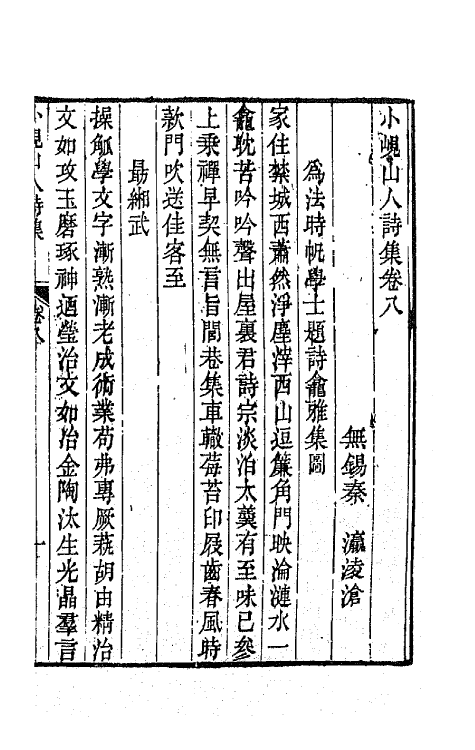 小峴山人詩集卷八
無錫秦　瀛淩滄
爲法時帆學士題詩龕雅集圖
家住禁城西蕭然淨塵滓西山逗簾角門映淪漣水一
龕耽苦吟吟聲出屋裏君詩宗淡泊太羹有至味已參
上乘禪早契無言旨閭巷集車轍莓苔印屐齒春風時
款門吹送佳客至
朂緗武
操觚學文字漸熟漸老成術業苟弗專厥藝胡由精治
文如攻玉磨琢神迺瑩治文如冶金陶汰生光晶羣言
小峴山人詩集　卷八　一